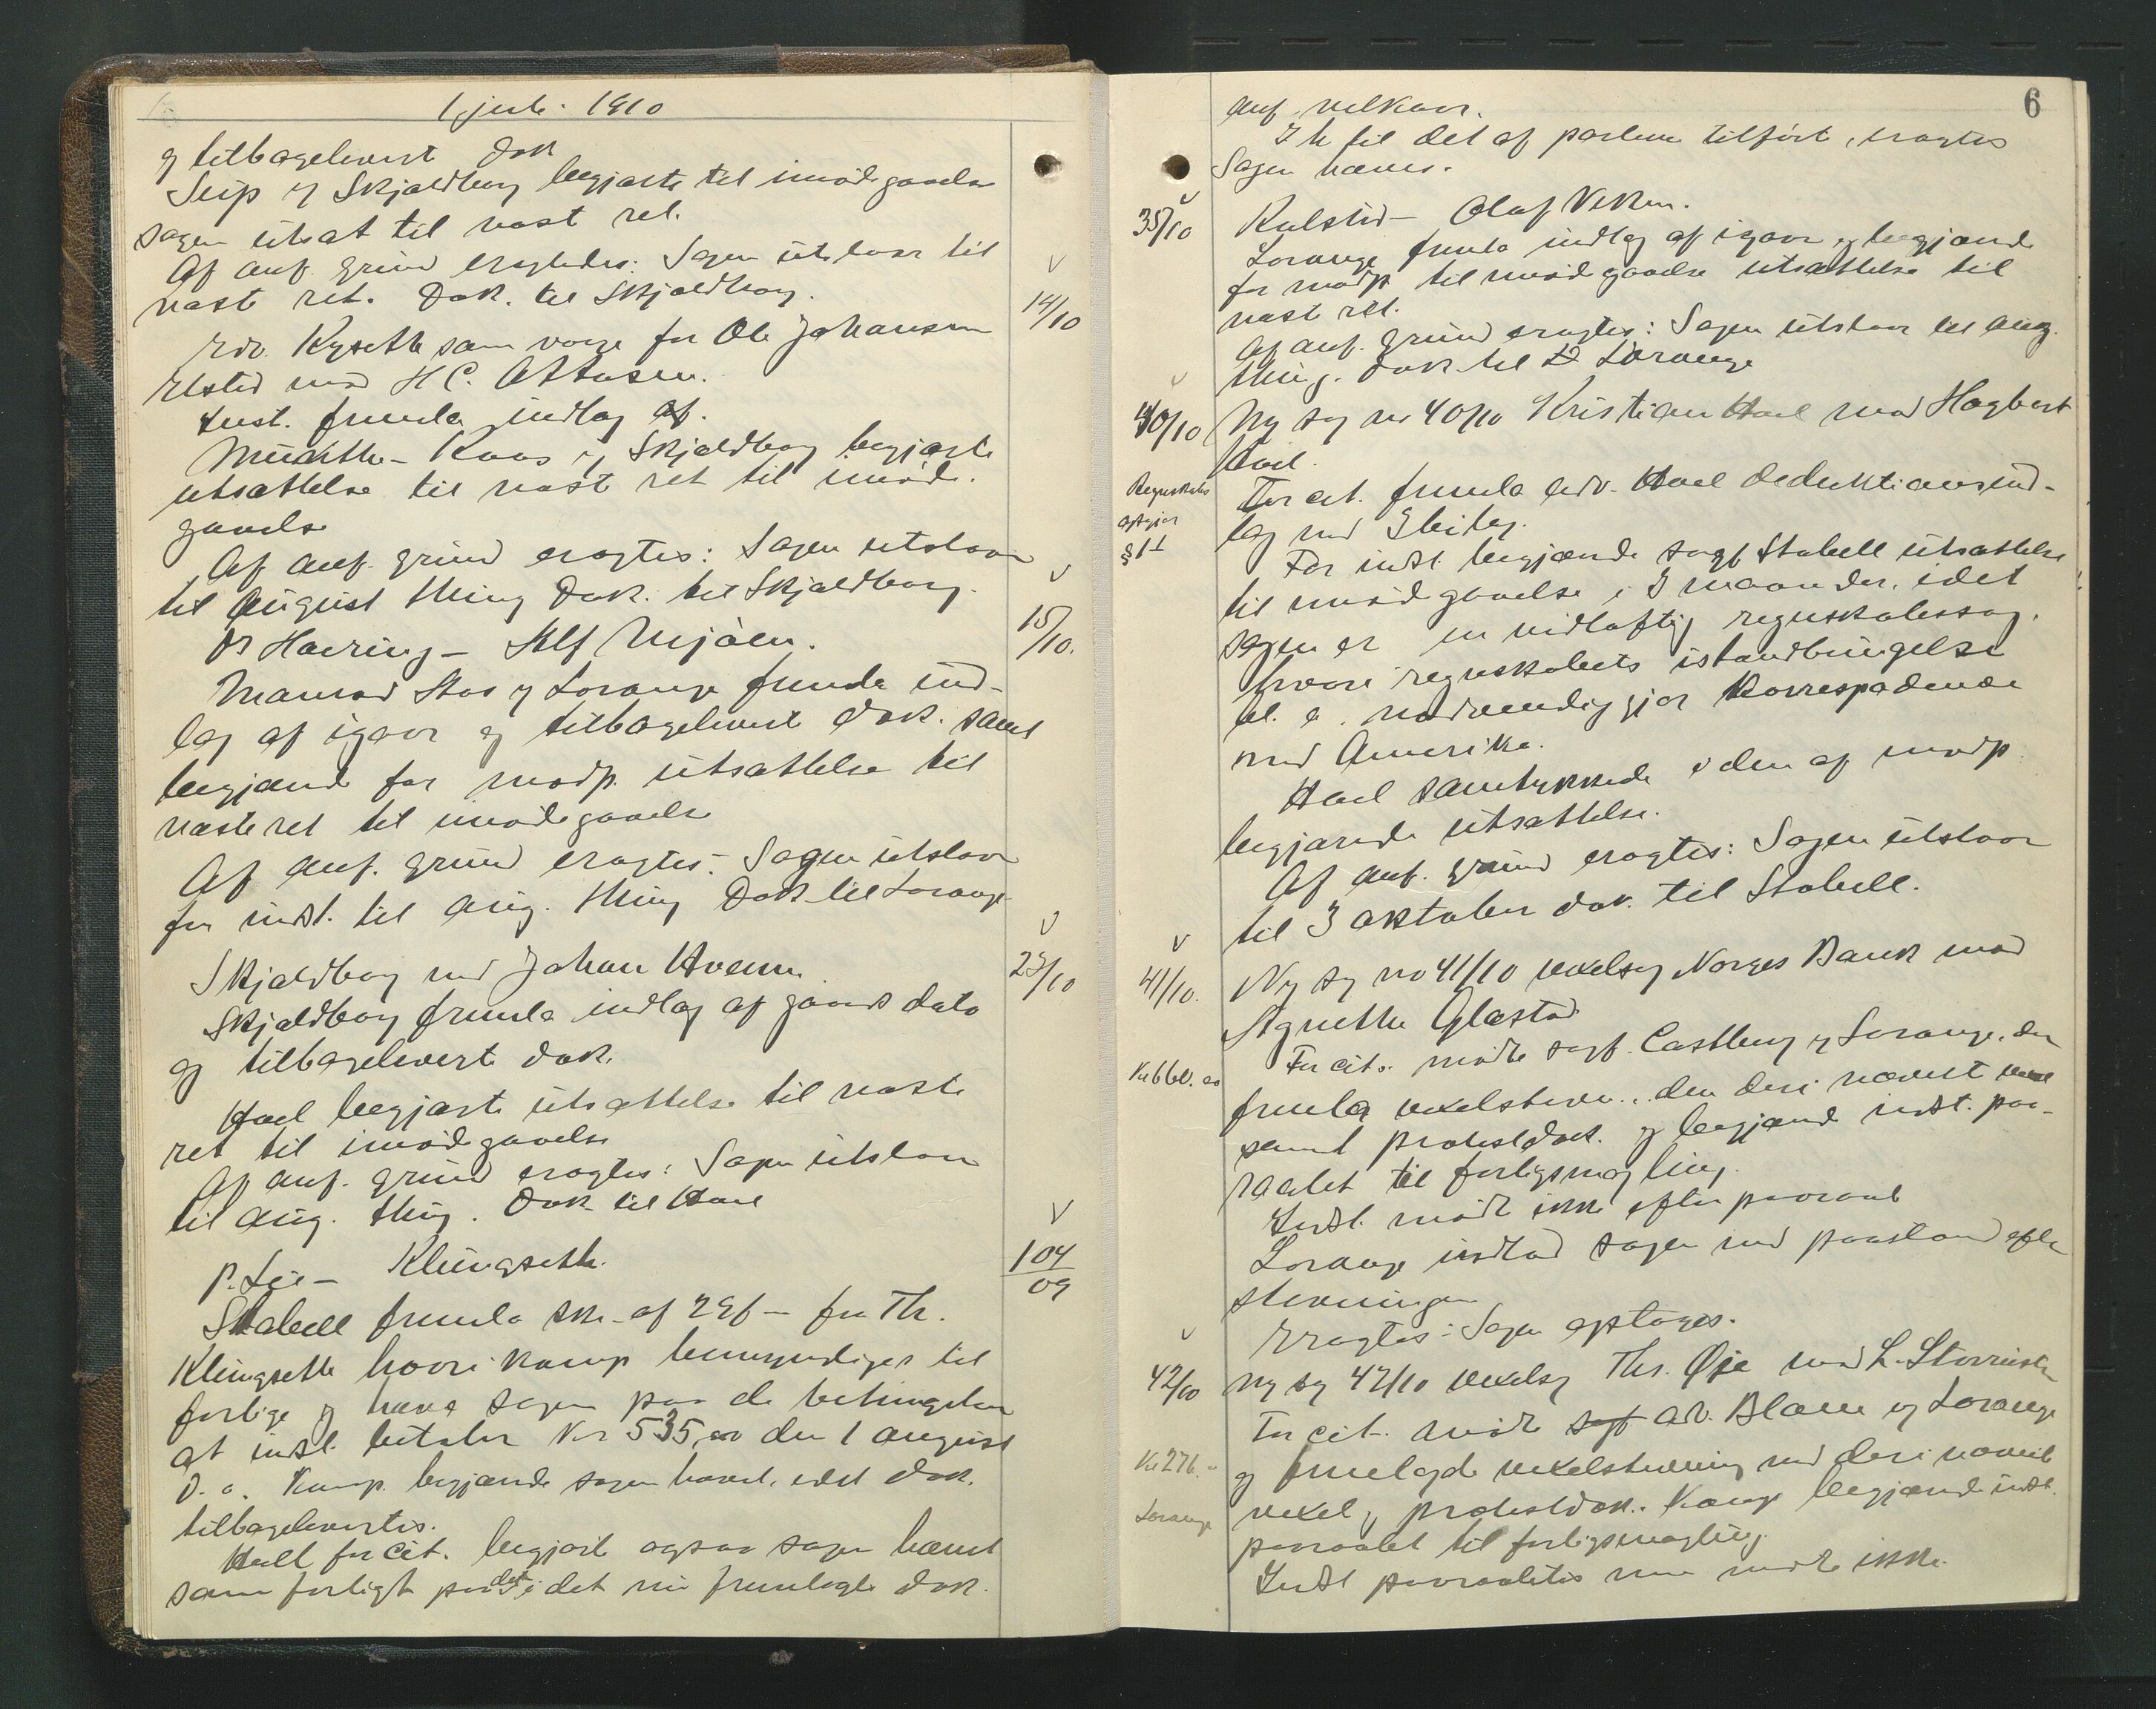 1 juli 1910
og tilbagelevert dok
Seip og Skjaldborg begjærte til imødegaaelse
sagen utsat til næst ret.
Af anf. grund eragtedes: Sagen utstaar til
næste ret. Dok. til Skjaldborg.
14/10
Kyseth som værge for Ole Johansen
mod H C.
Inst. fremla indlæg af.
Münster- Kaas og Skjaldborg begjærte
utsættelse til næst ret til imøde-
gaaelse
Af anf. grund eragtes: Sagen utstaar
til August thing Dok. til Skjaldborg.
15/10.
Hæring - Alf Mjøen.
Manrad Aas og Lorange fremla ind-
læg af igaar og tilbagelevert dok. samt
begjærte for modp. utsættelse til
næste ret til imødegaaelse
Af anf. grund eragtes: Sagen utstaar
for indst. til aug. thing Dok til Lorange
23/10
Skjaldborg mod Johan Hveem
Skjaldborg fremla indlæg af gaars dato
og tilbagelevert dok.
Hoel begjærte utsættelse til næste
ret til imødegaaelse
Af anf. grund eragtes: Sagen utstaar
til aug. thing. Dok til Hoel
104/09
P. Lie - Klüngseth.
Stabell fremla skr. af 29/6 - fra Th.
Klüngseth hvori komp bemyndiges til
forlige og hæve sagen paa de betingelser
at indst. betaler Kr 535,00 den 1 august
d. a. Komp. begjærede sagen hævet, idet dok.
tilbagelevertes.
Hoell for cit. begjært ogsaa sagen hævet
som forligt paa det i det nu fremlagte dok.
6
anf. vilkaar.
I h til det af parterne tilført, eragtes
Sagen hæves.
35/10
Kulstad - Olaf Viken.
Lorange fremla indlæg af igaar og begjærede
for modp til imødgaaelse utsættelse til
næst ret.
Af anf. grund eragtes: Sagen utstaar til aug.
thing. Dok til Lorange
40/10
Ny sag no 40/10 Kristian Hoel mod Hagbart
Hoel.
Regnskabs
opgjør
For cit. fremla adv. Hoel deduktionsind-
læg med 3 bilag.
For indst. begjærede sagf. Stabell utsættelse
til imødgaaelse i 3 maaneder, idet
sagen er en vidløftig regnskabssag,
hvori regnskabets istandbringelse
bl. a. nødvendiggjør Korrespodence
med Amerika.
Hoel samtykkede i den af modp.
begjærede utsættelse.
Af anf. grund eragtes: Sagen utstaar
til 3 oktober dok. til Stabell.
41/10.
Ny sag no 41/10 vexelsag Norges Bank mod
Agnethe Glæstad
For cit. mødte sagf. Castberg og Lorange, der
fremla vexelstevn., den deri nævnt vexel
samt protestdok. og begjærede indst. paa-
raabt til forligsmægling.
Indst. mødte ikke efter paaraab
Lorange indlod sagen med paastand efter
stevningen
Eragtes: Sagen optages.
42/10
Ny sag 42/10 vexelsag Thr. Øje mod L.
For cit. mødte sagf adv. Blom og Lorange
Kr 276.-
Lorange
og fremlagde vexelstevning med deri nævnt
vexel og protestdok. Komp begjærede indst.
paaraabt til forligsmægling.
Indst paaraabtes men mødte ikke.